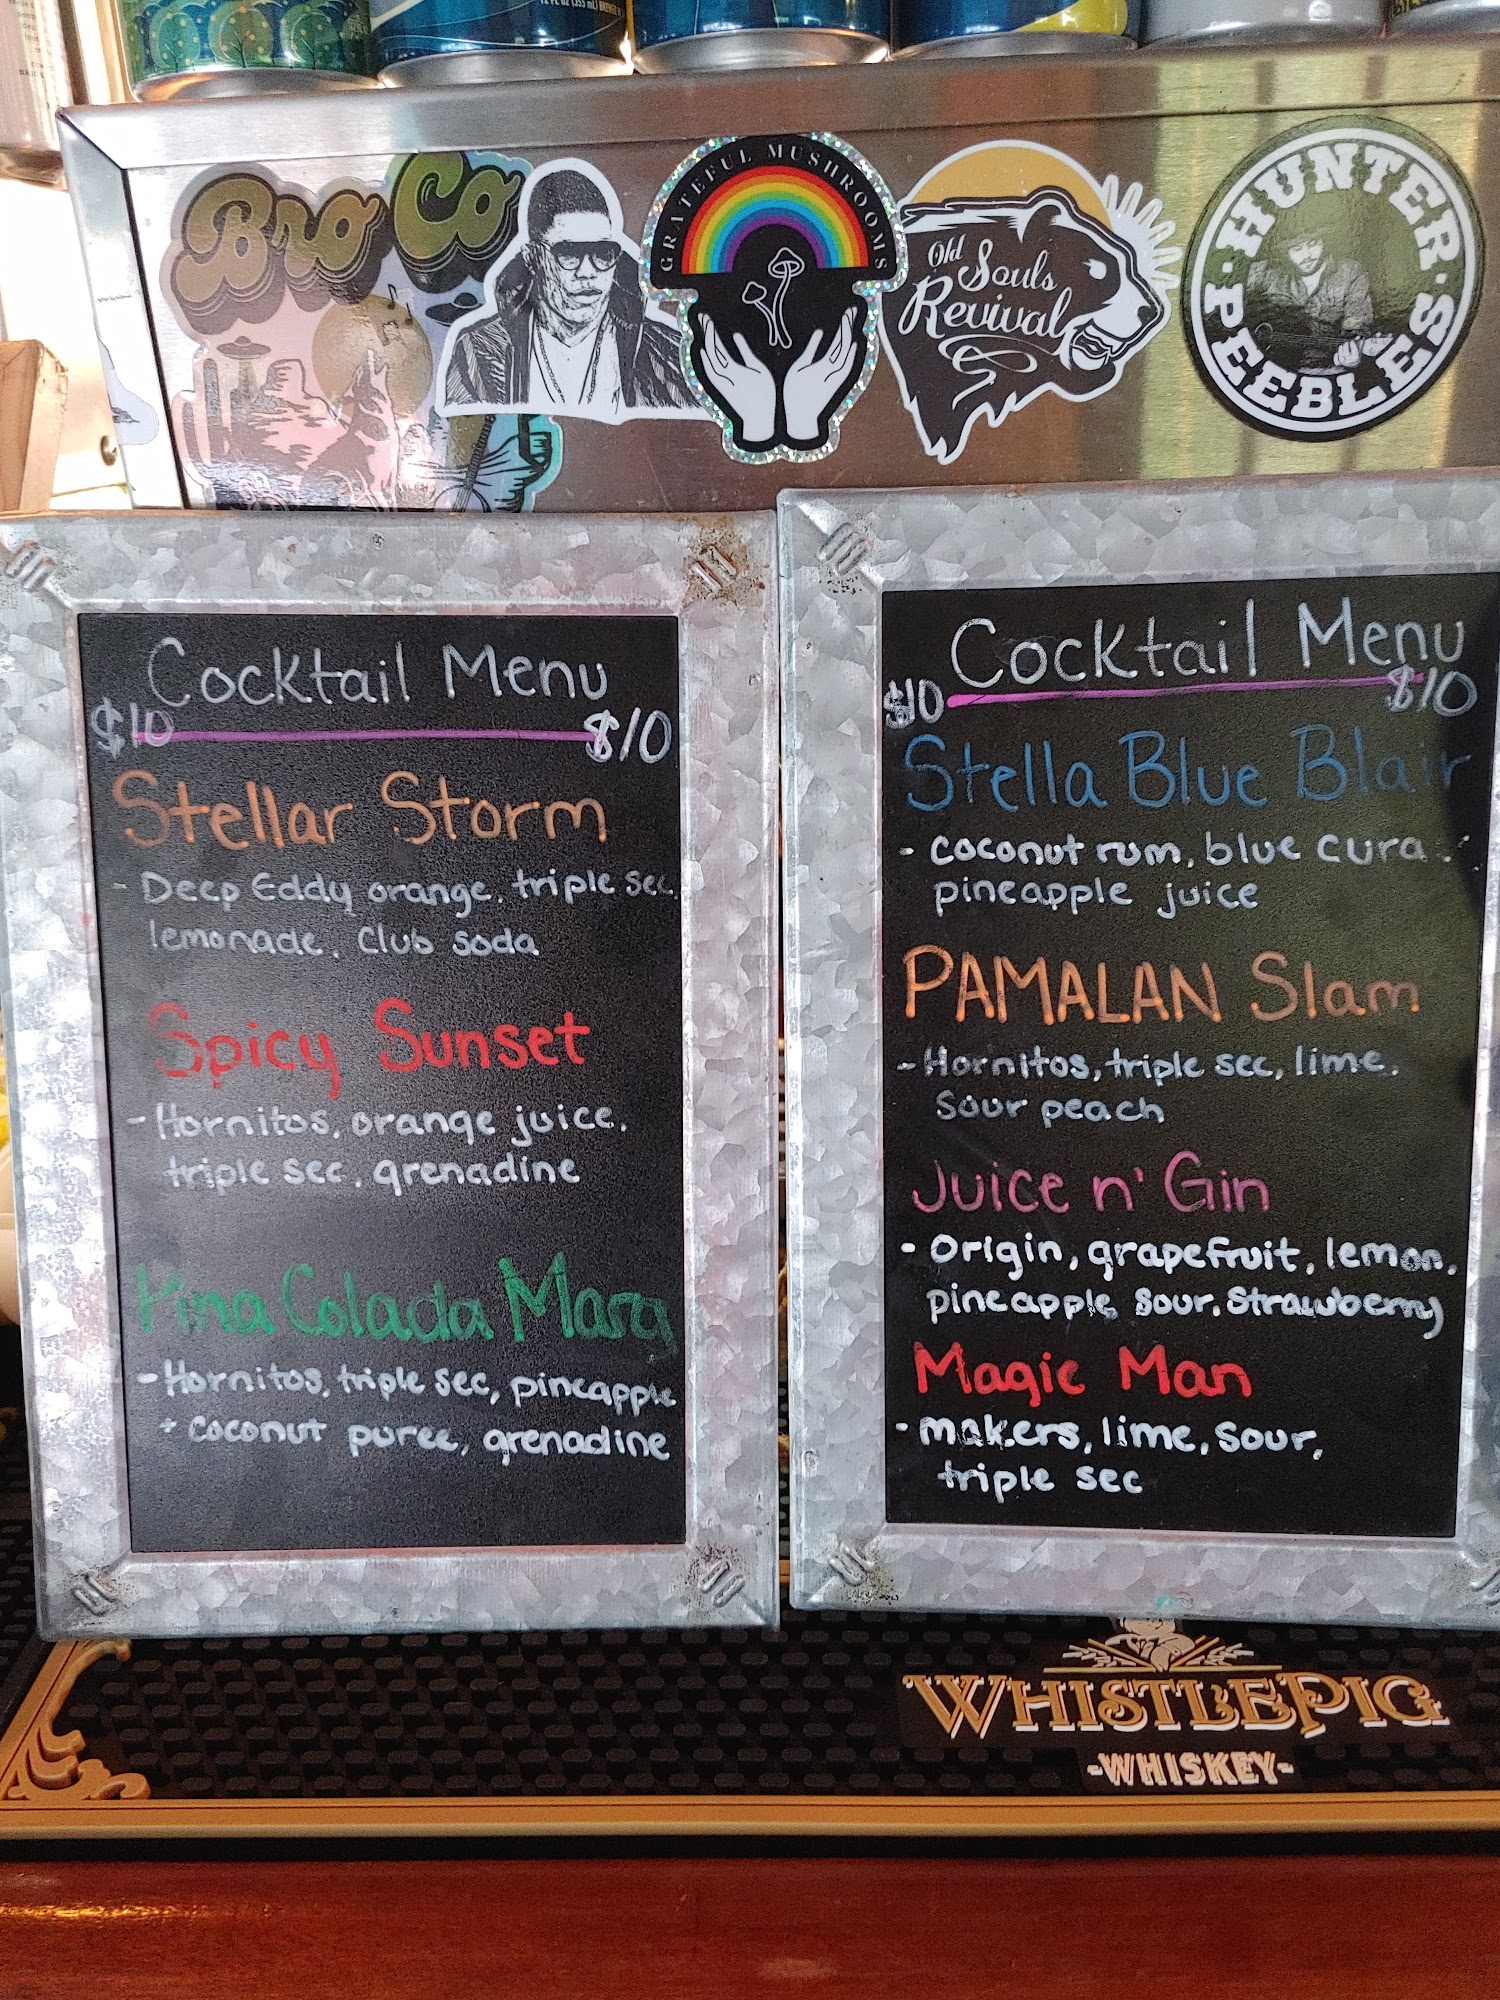 12 FL OZ (355 mL)
Bro Co
GRATEFUL MUSHROOMS
Old
Souls
Revival
HUNTER
PEEBLES
Cocktail Menu
$10 $10
Stellar Storm
- Deep Eddy orange, triple sec,
lemonade, Club soda
Spicy Sunset
- Hornitos, orange juice,
triple sec, grenadine
Pina Colada Marg
- Hornitos, triple sec, pineapple
+ coconut puree, grenadine
Cocktail Menu
$10 $10
Stella Blue Blair
- coconut rum, blue cura
pineapple juice
PAMALAN Slam
- Hornitos, triple sec, lime,
sour peach
Juice n' Gin
- Origin, grapefruit, lemon,
pineapple sour, strawberry
Magic Man
- makers, lime, sour,
triple sec
WHISTLEPIG
-WHISKEY-